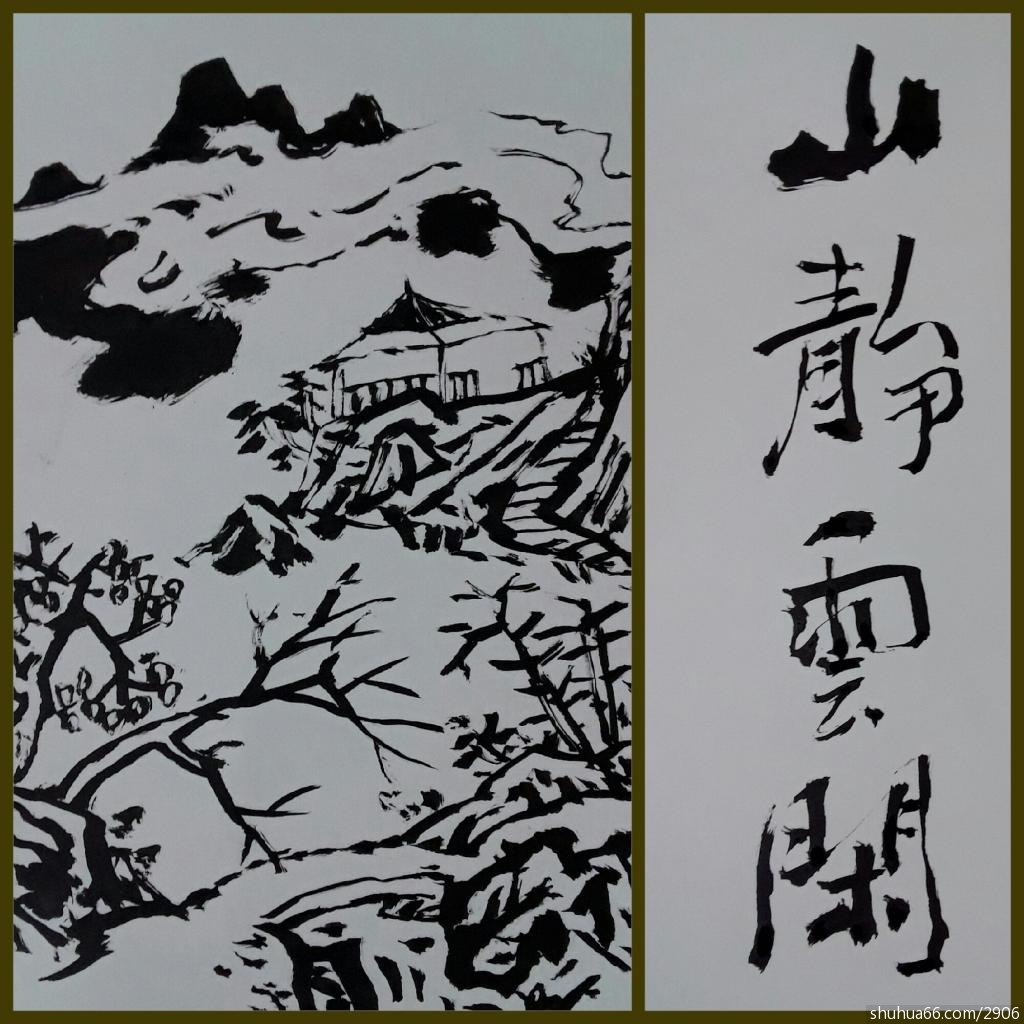 山靜雲閑
shuhua66.com/2906